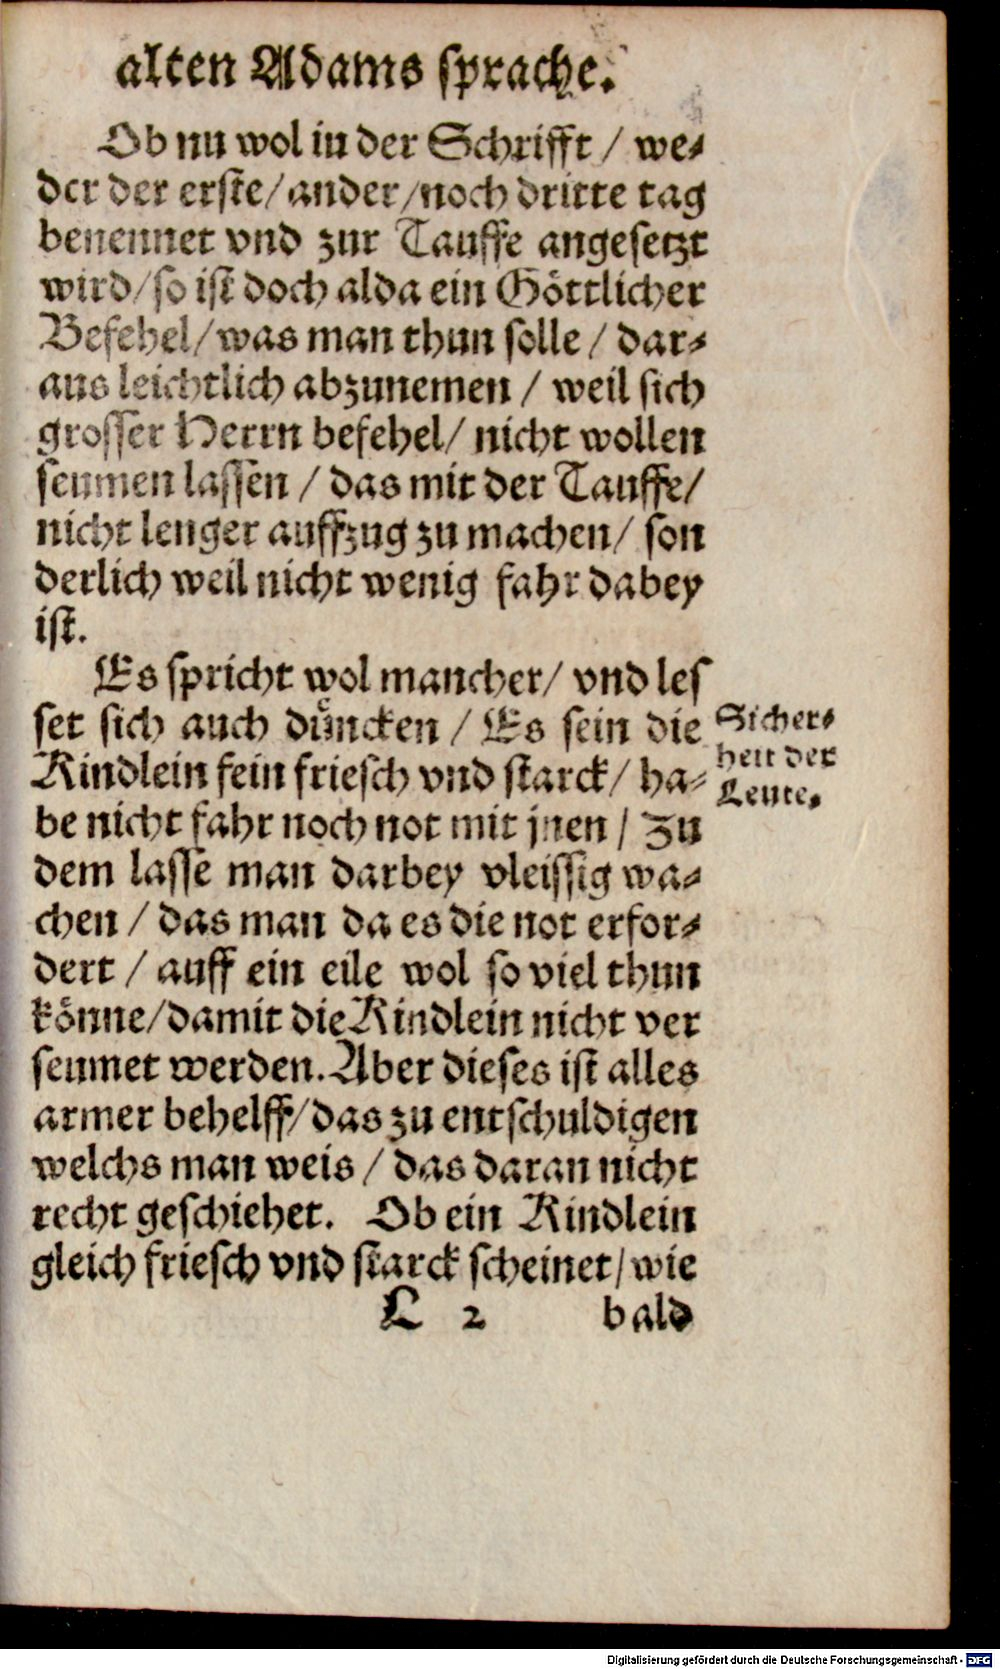 alten Adams sprache.
Ob nu wol in der Schrifft / we⸗
der der erste / ander / noch dritte tag
benennet vnd zur Tauffe angesetzt
wird / so ist doch alda ein Göttlicher
Befehel / was man thun solle / dar⸗
aus leichtlich abzunemen / weil sich
grosser Herrn befehel / nicht wollen
seumen lassen / das mit der Tauffe /
nicht lenger auffzug zu machen / son
derlich weil nicht wenig fahr dabey
ist.
Es spricht wol mancher / vnd les
set sich auch duͤncken / Es sein die
Kindlein fein friesch vnd starck / ha⸗
be nicht fahr noch not mit jnen / Zu
dem lasse man darbey vleissig wa⸗
chen / das man da es die not erfor⸗
dert / auff ein eile wol so viel thun
könne / damit die Kindlein nicht ver
seumet werden. Aber dieses ist alles
armer behelff / das zu entschuldigen
welchs man weis / das daran nicht
recht geschiehet. Ob ein Kindlein
gleich friesch vnd starck scheinet / wie
L 2 bald
Sicher⸗
heit der
Leute.
Digitalisierung gefördert durch die Deutsche Forschungsgemeinschaft - DFG